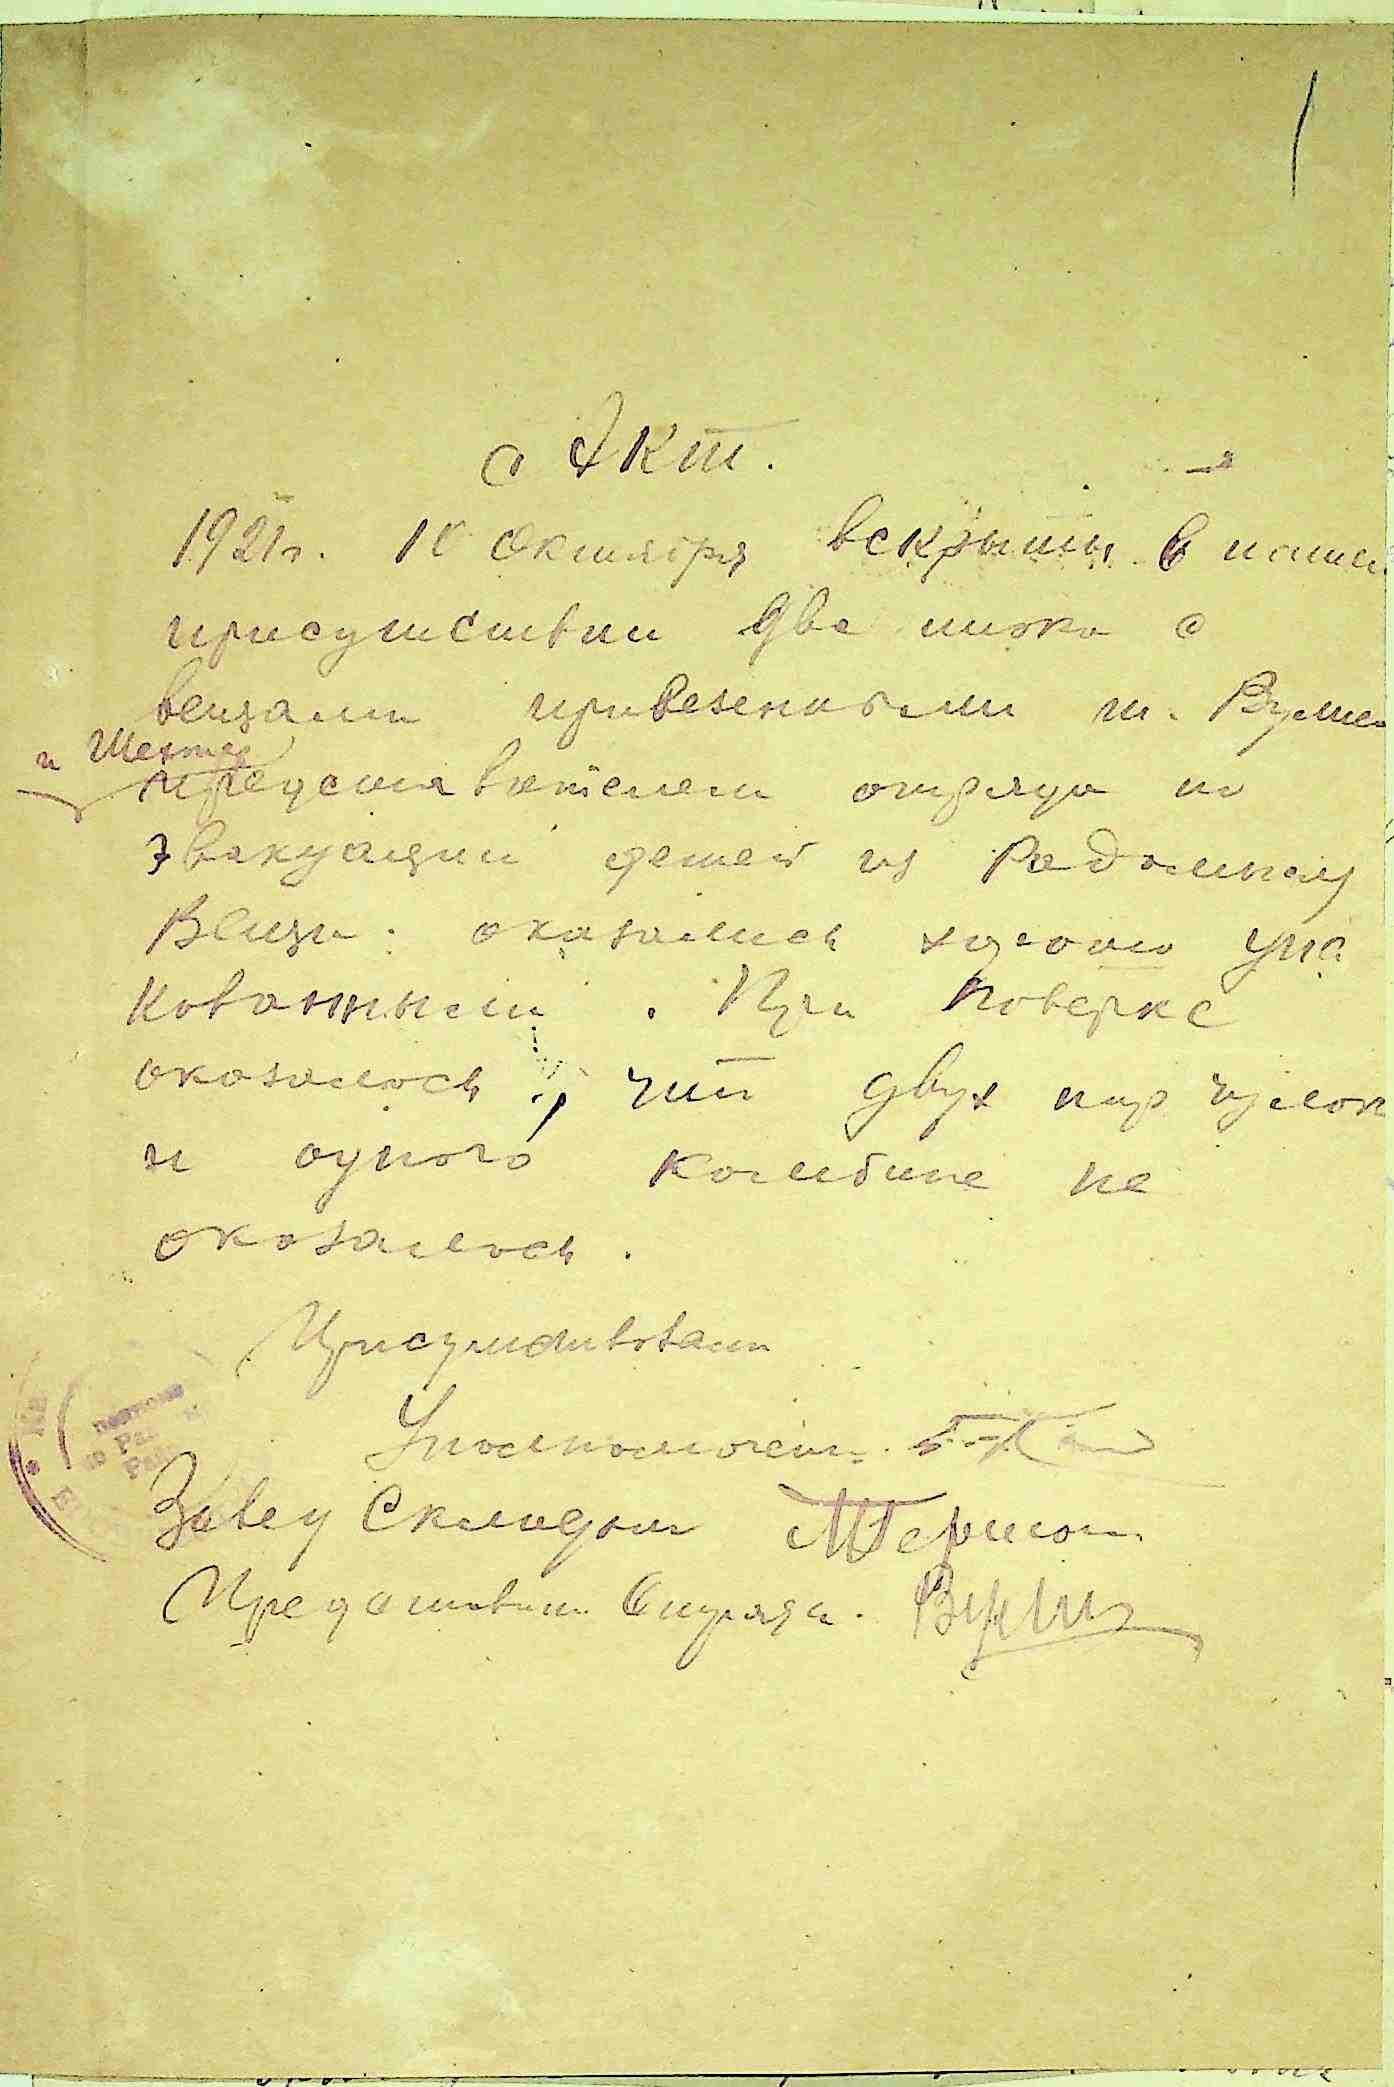 Акт.
1921г. 10 Октября вскрыты в нашем
присутствии два тюка с
вещами привезенными т.
и
представителем отряда по
эвакуации детей из Радомысл
Вещи оказались худо упа
кованными. При поверке
оказалось, что двух пар чулок
и одного комбине не
оказалось.
Присутствовали
Уполномочен.
Завед Складом
Представит. Отряда.